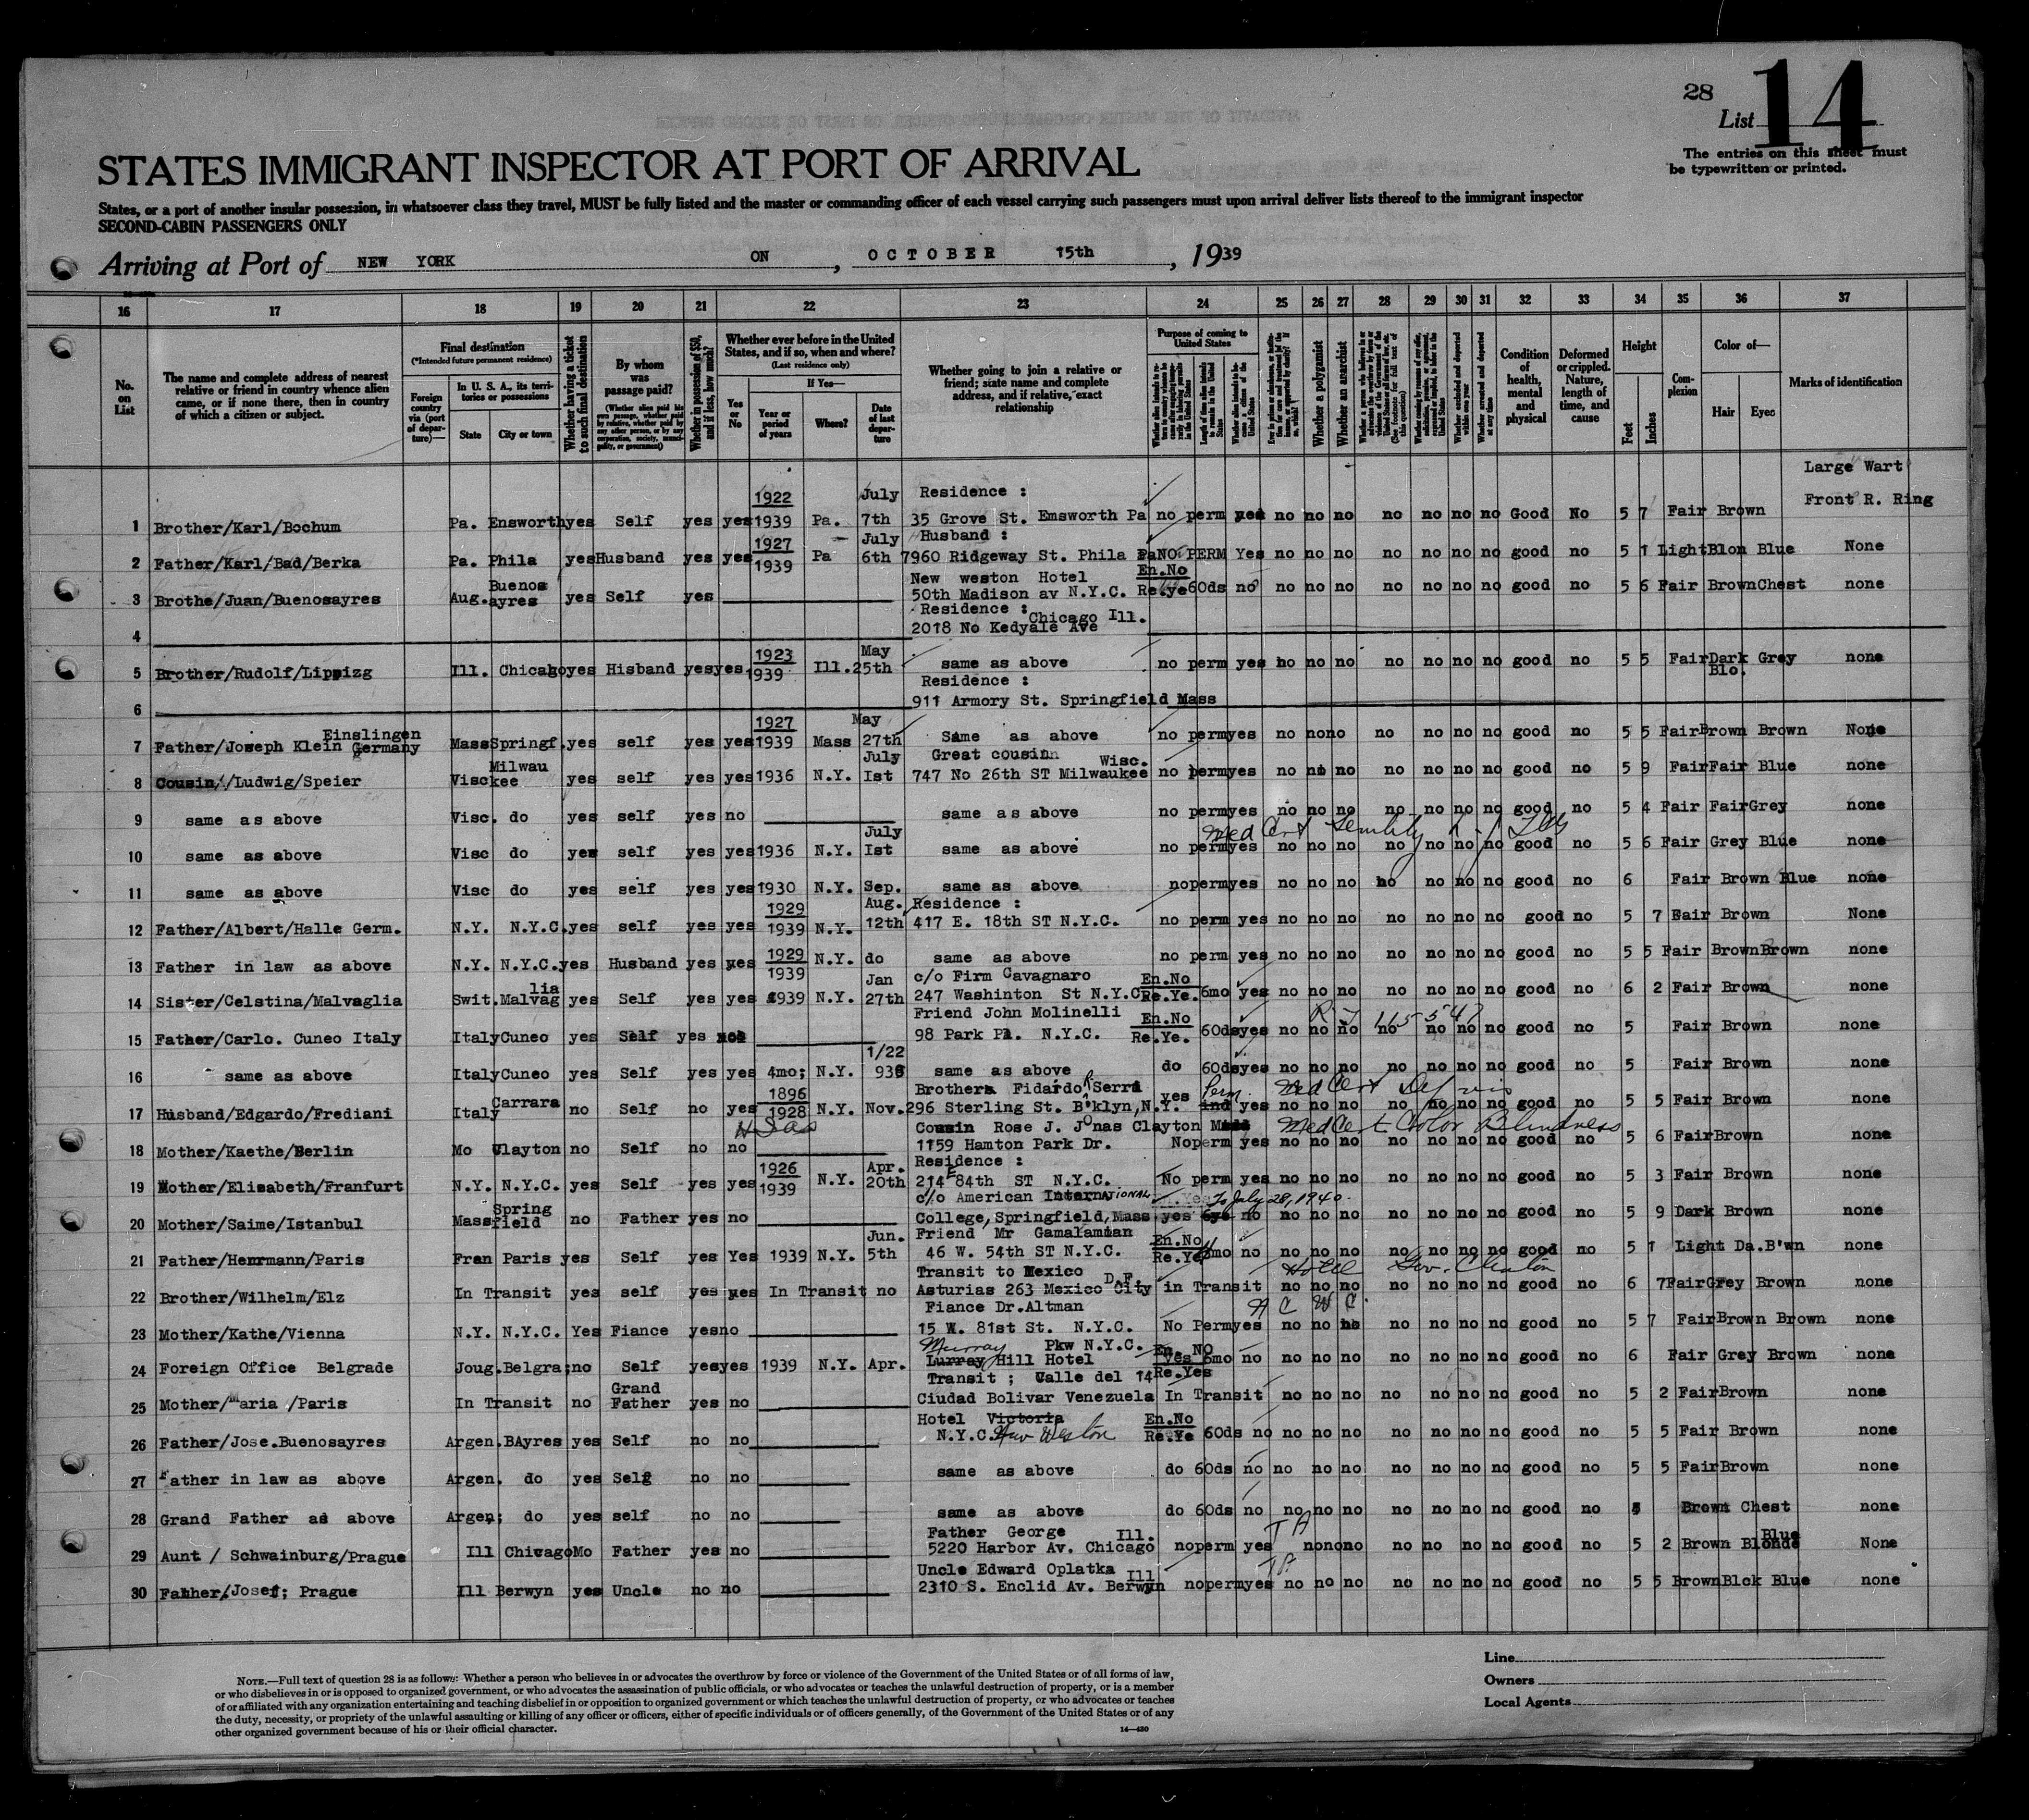 28
List 14
The entries on this sheet must
be typewritten or printed.
STATES IMMIGRANT INSPECTOR AT PORT OF ARRIVAL
States, or a port of another insular possession, in whatsoever class they travel, MUST be fully listed and the master or commanding officer of each vessel carrying such passengers must upon arrival deliver lists thereof to the immigrant inspector
SECOND-CABIN PASSENGERS ONLY
Arriving at Port of NEW YORK ON, OCTOBER 15th, 1939
16 17 18 19 20 21 22 23 24 25 26 27 28 29 30 31 32 33 34 35 36 37
No. on List
The name and complete address of nearest relative or friend in country whence alien came, or if none there, then in country of which a citizen or subject.
Final destination
(*Intended future permanent residence)
Foreign country via (port of departure)—
In U. S. A., its territories or possessions
State
City or town
Whether having a ticket to such final destination
By whom was passage paid?
(Whether alien paid his own passage, whether paid by relative, whether paid by any other person, or by any corporation, society, municipality, or government)
Whether in possession of $50, and if less, how much?
Whether ever before in the United States, and if so, when and where?
(Last residence only)
Yes or No
If Yes—
Year or period of years
Where?
Date of last departure
Whether going to join a relative or friend; state name and complete address, and if relative, exact relationship
Purpose of coming to United States
Length of time alien intends to remain in the United States
Whether a polygamist
Whether an anarchist
Condition of health, mental and physical
Deformed or crippled. Nature, length of time, and cause
Height
Feet
Inches
Complexion
Color of—
Hair
Eyes
Marks of identification
Large Wart
1922 July Residence : Front R. Ring
1 Brother/Karl/Bochum Pa. Ensworth yes Self yes yes 1939 Pa. 7th 35 Grove St. Emsworth Pa no perm yes no no no no no no no Good No 5 7 Fair Brown
1927 July Husband :
2 Father/Karl/Bad/Berka Pa. Phila yes Husband yes yes 1939 Pa 6th 7960 Ridgeway St. Phila Pa NO PERM Yes no no no no no no no good no 5 1 Light Blon Blue None
Buenos New weston Hotel En.No
3 Brothe/Juan/Buenosayres Aug. ayres yes Self yes 50th Madison av N.Y.C. Re.ye 60ds no no no no no no no no good no 5 6 Fair Brown Chest none
Residence : Chicago Ill.
4 2018 No Kedyale Ave
1923 May
5 Brother/Rudolf/Lippizg Ill. Chicago yes Hisband yes yes 1939 Ill. 25th same as above no perm yes no no no no no no no good no 5 5 Fair Dark Blo. Grey none
Residence :
6 911 Armory St. Springfield Mass
Einslingen 1927 May
7 Father/Joseph Klein Germany Mass Springf. yes self yes yes 1939 Mass 27th Same as above no perm yes no no no no no no no good no 5 5 Fair Brown Brown None
Milwau July Great cousin Wisc.
8 Cousin/Ludwig/Speier Visc kee yes self yes yes 1936 N.Y. Ist 747 No 26th ST Milwaukee no perm yes no no no no no no no good no 5 9 Fair Fair Blue none
9 same as above Visc. do yes self yes no same as above no perm yes no no no no no no no good no 5 4 Fair Fair Grey none
July Med Cert
10 same as above Visc do yes self yes yes 1936 N.Y. Ist same as above no perm yes no no no no no no no good no 5 6 Fair Grey Blue none
11 same as above Visc do yes self yes yes 1930 N.Y. Sep. same as above no perm yes no no no no no no no good no 6 Fair Brown Blue none
1929 Aug. Residence :
12 Father/Albert/Halle Germ. N.Y. N.Y.C. yes self yes yes 1939 N.Y. 12th 417 E. 18th ST N.Y.C. no perm yes no no no no no no no good no 5 7 Fair Brown None
1929
13 Father in law as above N.Y. N.Y.C. yes Husband yes yes 1939 N.Y. do same as above no perm yes no no no no no no no good no 5 5 Fair Brown Brown none
lia Jan c/o Firm Cavagnaro En.No
14 Sister/Celstina/Malvaglia Swit. Malvag yes Self yes yes 1939 N.Y. 27th 247 Washinton St N.Y.C Re.Ye. 6mo yes no no no no no no no good no 6 2 Fair Brown none
Friend John Molinelli En.No
15 Father/Carlo. Cuneo Italy Italy Cuneo yes Self yes 98 Park Pl. N.Y.C. Re.Ye. 60ds yes no no no no no no no good no 5 Fair Brown none
1/22
16 same as above Italy Cuneo yes Self yes yes 4mo; N.Y. same as above do 60ds yes no no no no no no no good no 5 Fair Brown none
Carrara 1896 Brothers Fidardo Serra Perm. Med Cert Def vis
17 Husband/Edgardo/Frediani Italy no Self no yes 1928 N.Y. Nov. 296 Sterling St. B'klyn,N.Y. yes ind yes no no no no no no no good no 5 5 Fair Brown none
Cousin Rose J. Jonas Clayton Med Cert Color Blindness
18 Mother/Kaethe/Berlin Mo Clayton no Self no no 1159 Hamton Park Dr. No perm yes no no no no no no no good no 5 6 Fair Brown none
1926 Apr. Residence :
19 Mother/Elisabeth/Franfurt N.Y. N.Y.C. yes Self yes yes 1939 N.Y. 20th 214 E 84th ST N.Y.C. No perm yes no no no no no no no good no 5 3 Fair Brown none
Spring c/o American International To July 28, 1940.
20 Mother/Saime/Istanbul Mass field no Father yes no College,Springfield,Mass yes no no no no no no no no good no 5 9 Dark Brown none
Jun. Friend Mr Gamalamian En.No
21 Father/Herrmann/Paris Fran Paris yes Self yes Yes 1939 N.Y. 5th 46 W. 54th ST N.Y.C. Re.Ye 6mo no no no no no no no no good no 5 1 Light Da.B'wn none
Transit to Mexico D.F. Hotel Gov. Clinton
22 Brother/Wilhelm/Elz In Transit yes self yes yes In Transit no Asturias 263 Mexico City in Transit no no no no no no no good no 6 7 Fair Grey Brown none
Fiance Dr.Altman
23 Mother/Kathe/Vienna N.Y. N.Y.C. Yes Fiance yes no 15 W. 81st St. N.Y.C. No Perm yes no no no no no no no good no 5 7 Fair Brown Brown none
Murray Pkw N.Y.C. En. NO
24 Foreign Office Belgrade Joug. Belgra; no Self yes yes 1939 N.Y. Apr. Lurray Hill Hotel yes 6mo no no no no no no no no good no 6 Fair Grey Brown none
Grand Transit ; Calle del 14 Re.Yes
25 Mother/Maria /Paris In Transit no Father yes no Ciudad Bolivar Venezuela In Transit no no no no no no no good no 5 2 Fair Brown none
Hotel Victoria En.No
26 Father/Jose.Buenosayres Argen. BAyres yes Self no no N.Y.C. New Weston Re.Ye 60ds no no no no no no no no good no 5 5 Fair Brown none
27 Father in law as above Argen. do yes Self no no same as above do 60ds no no no no no no no no good no 5 5 Fair Brown none
28 Grand Father as above Argen; do yes self no no same as above do 60ds no no no no no no no no good no Brown Chest none
Father George Ill. T A Blue
29 Aunt / Schwainburg/Prague Ill Chivago Mo Father yes no 5220 Harbor Av. Chicago no perm yes no no no no no no no good no 5 2 Brown Blonde None
Uncle Edward Oplatka Ill T A
30 Father/Josef; Prague Ill Berwyn yes Uncle no no 2310 S. Enclid Av. Berwyn no perm yes no no no no no no no good no 5 5 Brown Blck Blue none
NOTE.—Full text of question 28 is as follows: Whether a person who believes in or advocates the overthrow by force or violence of the Government of the United States or of all forms of law,
or who disbelieves in or is opposed to organized government, or who advocates the assassination of public officials, or who advocates or teaches the unlawful destruction of property, or is a member
of or affiliated with any organization entertaining and teaching disbelief in or opposition to organized government or which teaches the unlawful destruction of property, or who advocates or teaches
the duty, necessity, or propriety of the unlawful assaulting or killing of any officer or officers, either of specific individuals or of officers generally, of the Government of the United States or of any
other organized government because of his or their official character.
14—430
Line
Owners
Local Agents